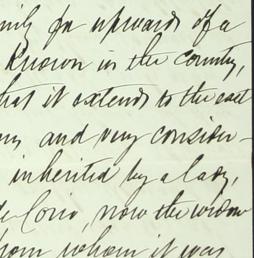 for upwards of a
Known in the County,
that it extends to the east
and very consider-
inherited by a lady,
now the widow
from whom it was